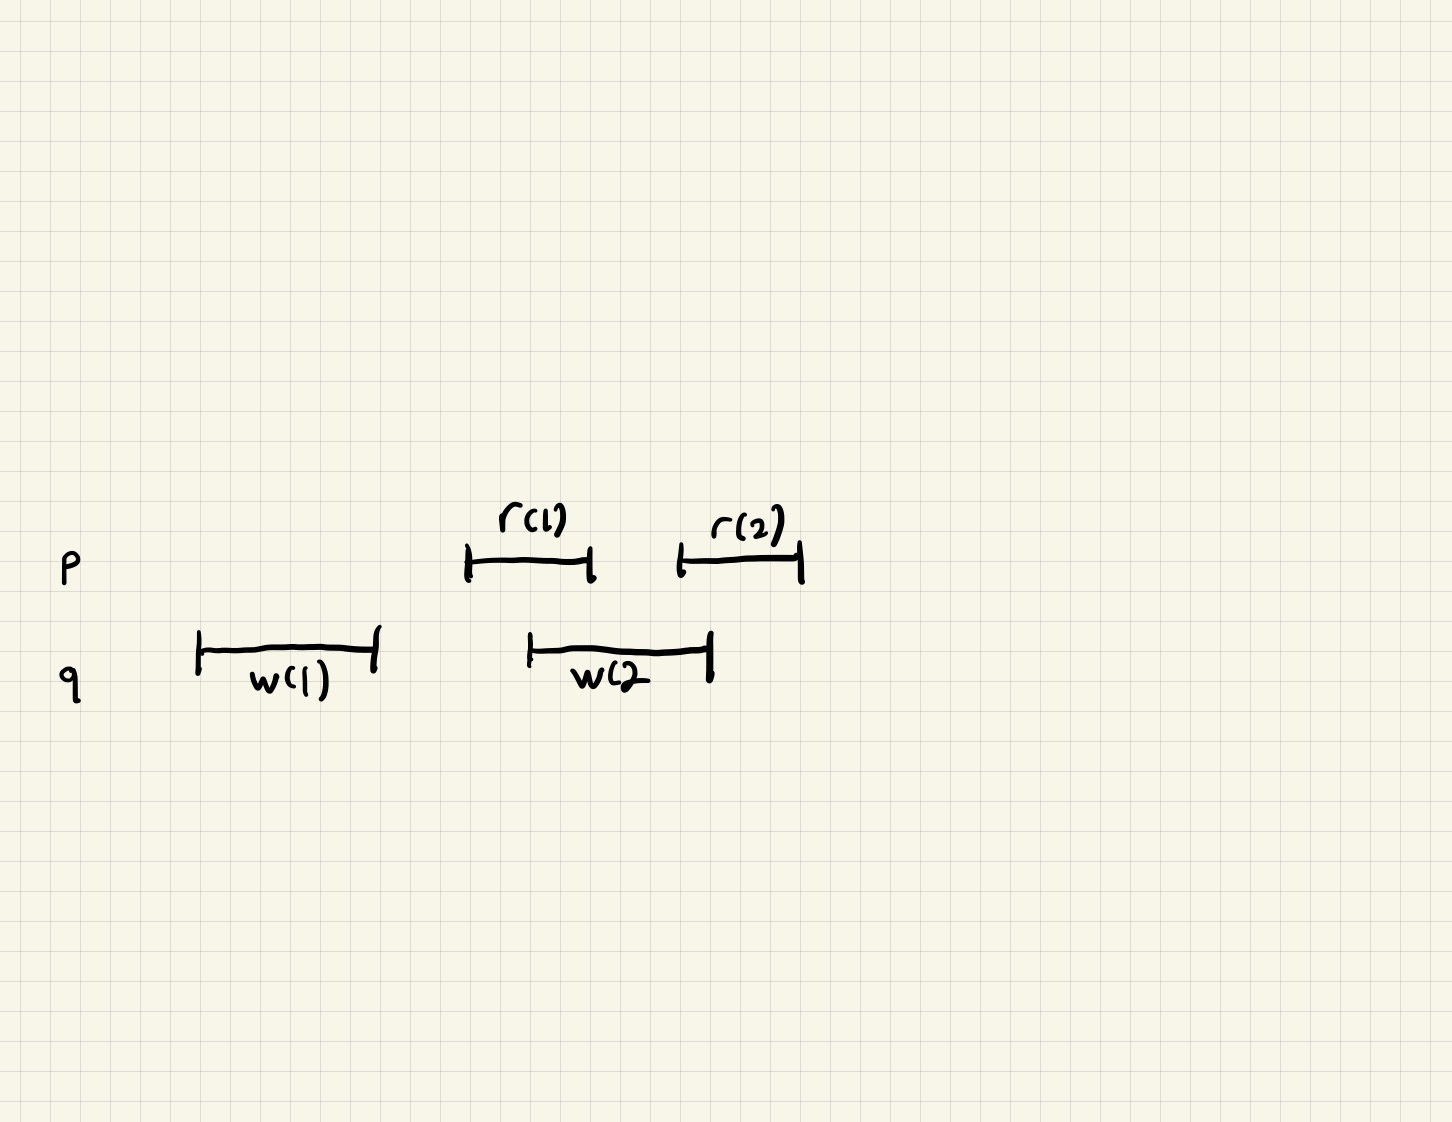 r(1) r(2)
p
w(1) w(2
q